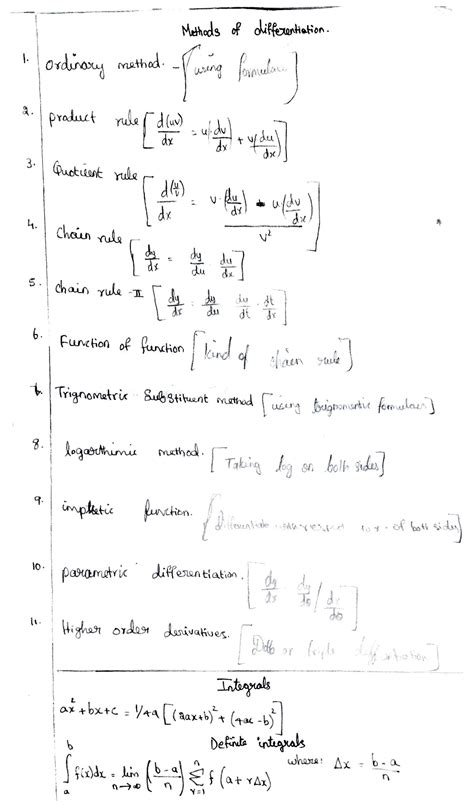 Methods of differentiation.
1. Ordinary method. - [using formulae]
2. product rule [d(uv)/dx = u(dv/dx) + v(du/dx)]
3. Quotient rule
[d(u/v)/dx = v·(du/dx) - u(dv/dx) / v²]
4. Chain rule [dy/dx = dy/du du/dx]
5. chain rule - II [dy/dx = dy/du du/dt · dt/dx]
6. Function of function [kind of chain rule]
Trignometric Substituent method [using trignometric formulaes]
8. logarthimic method. [Taking log on both sides]
9. implictic function. [Differentiate to x - of both sides]
10. parametric differentiation. [dy/dx dy/dθ / dx/dθ]
11. Higher order derivatives. [or differentiation]
Integrals
ax² + bx + c = 1/4a [(2ax+b)² + (4ac - b)²]
Definite integrals
∫ₐᵇ f(x)dx = lim n→∞ (b-a/n) Σ r=1 n f(a + rΔx) where: Δx = b-a/n